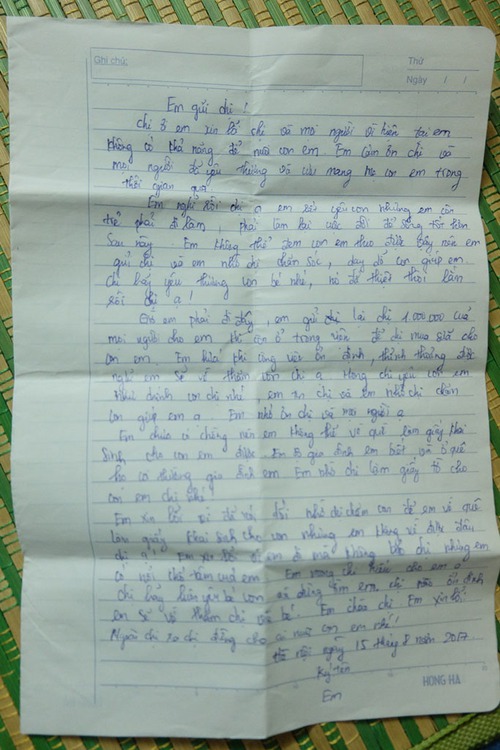 Ghi chú:
Thứ
Ngày / /
Em gửi chị !
Chị ơi em xin lỗi chị và mọi người vì hiện tại em
không có khả năng để nuôi con em. Em cảm ơn chị và
mọi người đã yêu thương và cưu mang mẹ con em trong
thời gian qua
Em nghĩ rồi chị ạ em rất yêu con nhưng em còn
trẻ phải đi làm, phải làm lại cuộc đời để sống tốt hơn
Sau này. Em không thể đem con em theo được bây giờ nên em
gửi chị và em nhờ chị chăm sóc, dạy dỗ con giúp em.
Chị hãy yêu thương con bé nhé, nó đã thiệt thòi lắm
rồi chị ạ !
Giờ em phải đi đây, em gửi chị lại chị 1.000.000 của
mọi người cho em khi em ở trong viện để chị mua sữa cho
con em. Em khi công việc ổn định, thỉnh thoảng được
nghỉ em sẽ về thăm con chị ạ. Mong chị yêu con em
như chính con chị nhé, em xin chị và em nhờ chị chăm
con giúp em ạ. Em nhớ ơn chị và mọi người ạ
Em chưa có chồng nên em không thể về quê làm giấy khai
Sinh cho con em được. Em gia đình em biết ở quê
họ gia đình em. Em nhờ chị làm giấy tờ cho
con em chị nhé
Em xin lỗi vì đã nói dối nhờ chị chăm con để em về quê
làm giấy khai sinh cho con nhưng em không về được đâu
chị ạ ! Em xin lỗi vì đã đi mà không chị nhưng em
có nỗi khổ tâm của em. Em mong chị hiểu cho em ạ
Chị hãy em và đừng tìm em, chị nhé ổn định
em sẽ về thăm chị và bé. Em chào chị. Em xin lỗi.
Ngoài chị ra chị đừng cho ai nuôi con em nhé!
Hà nội ngày 15 tháng 8 năm 2017
Ký tên
Em
HONG HA